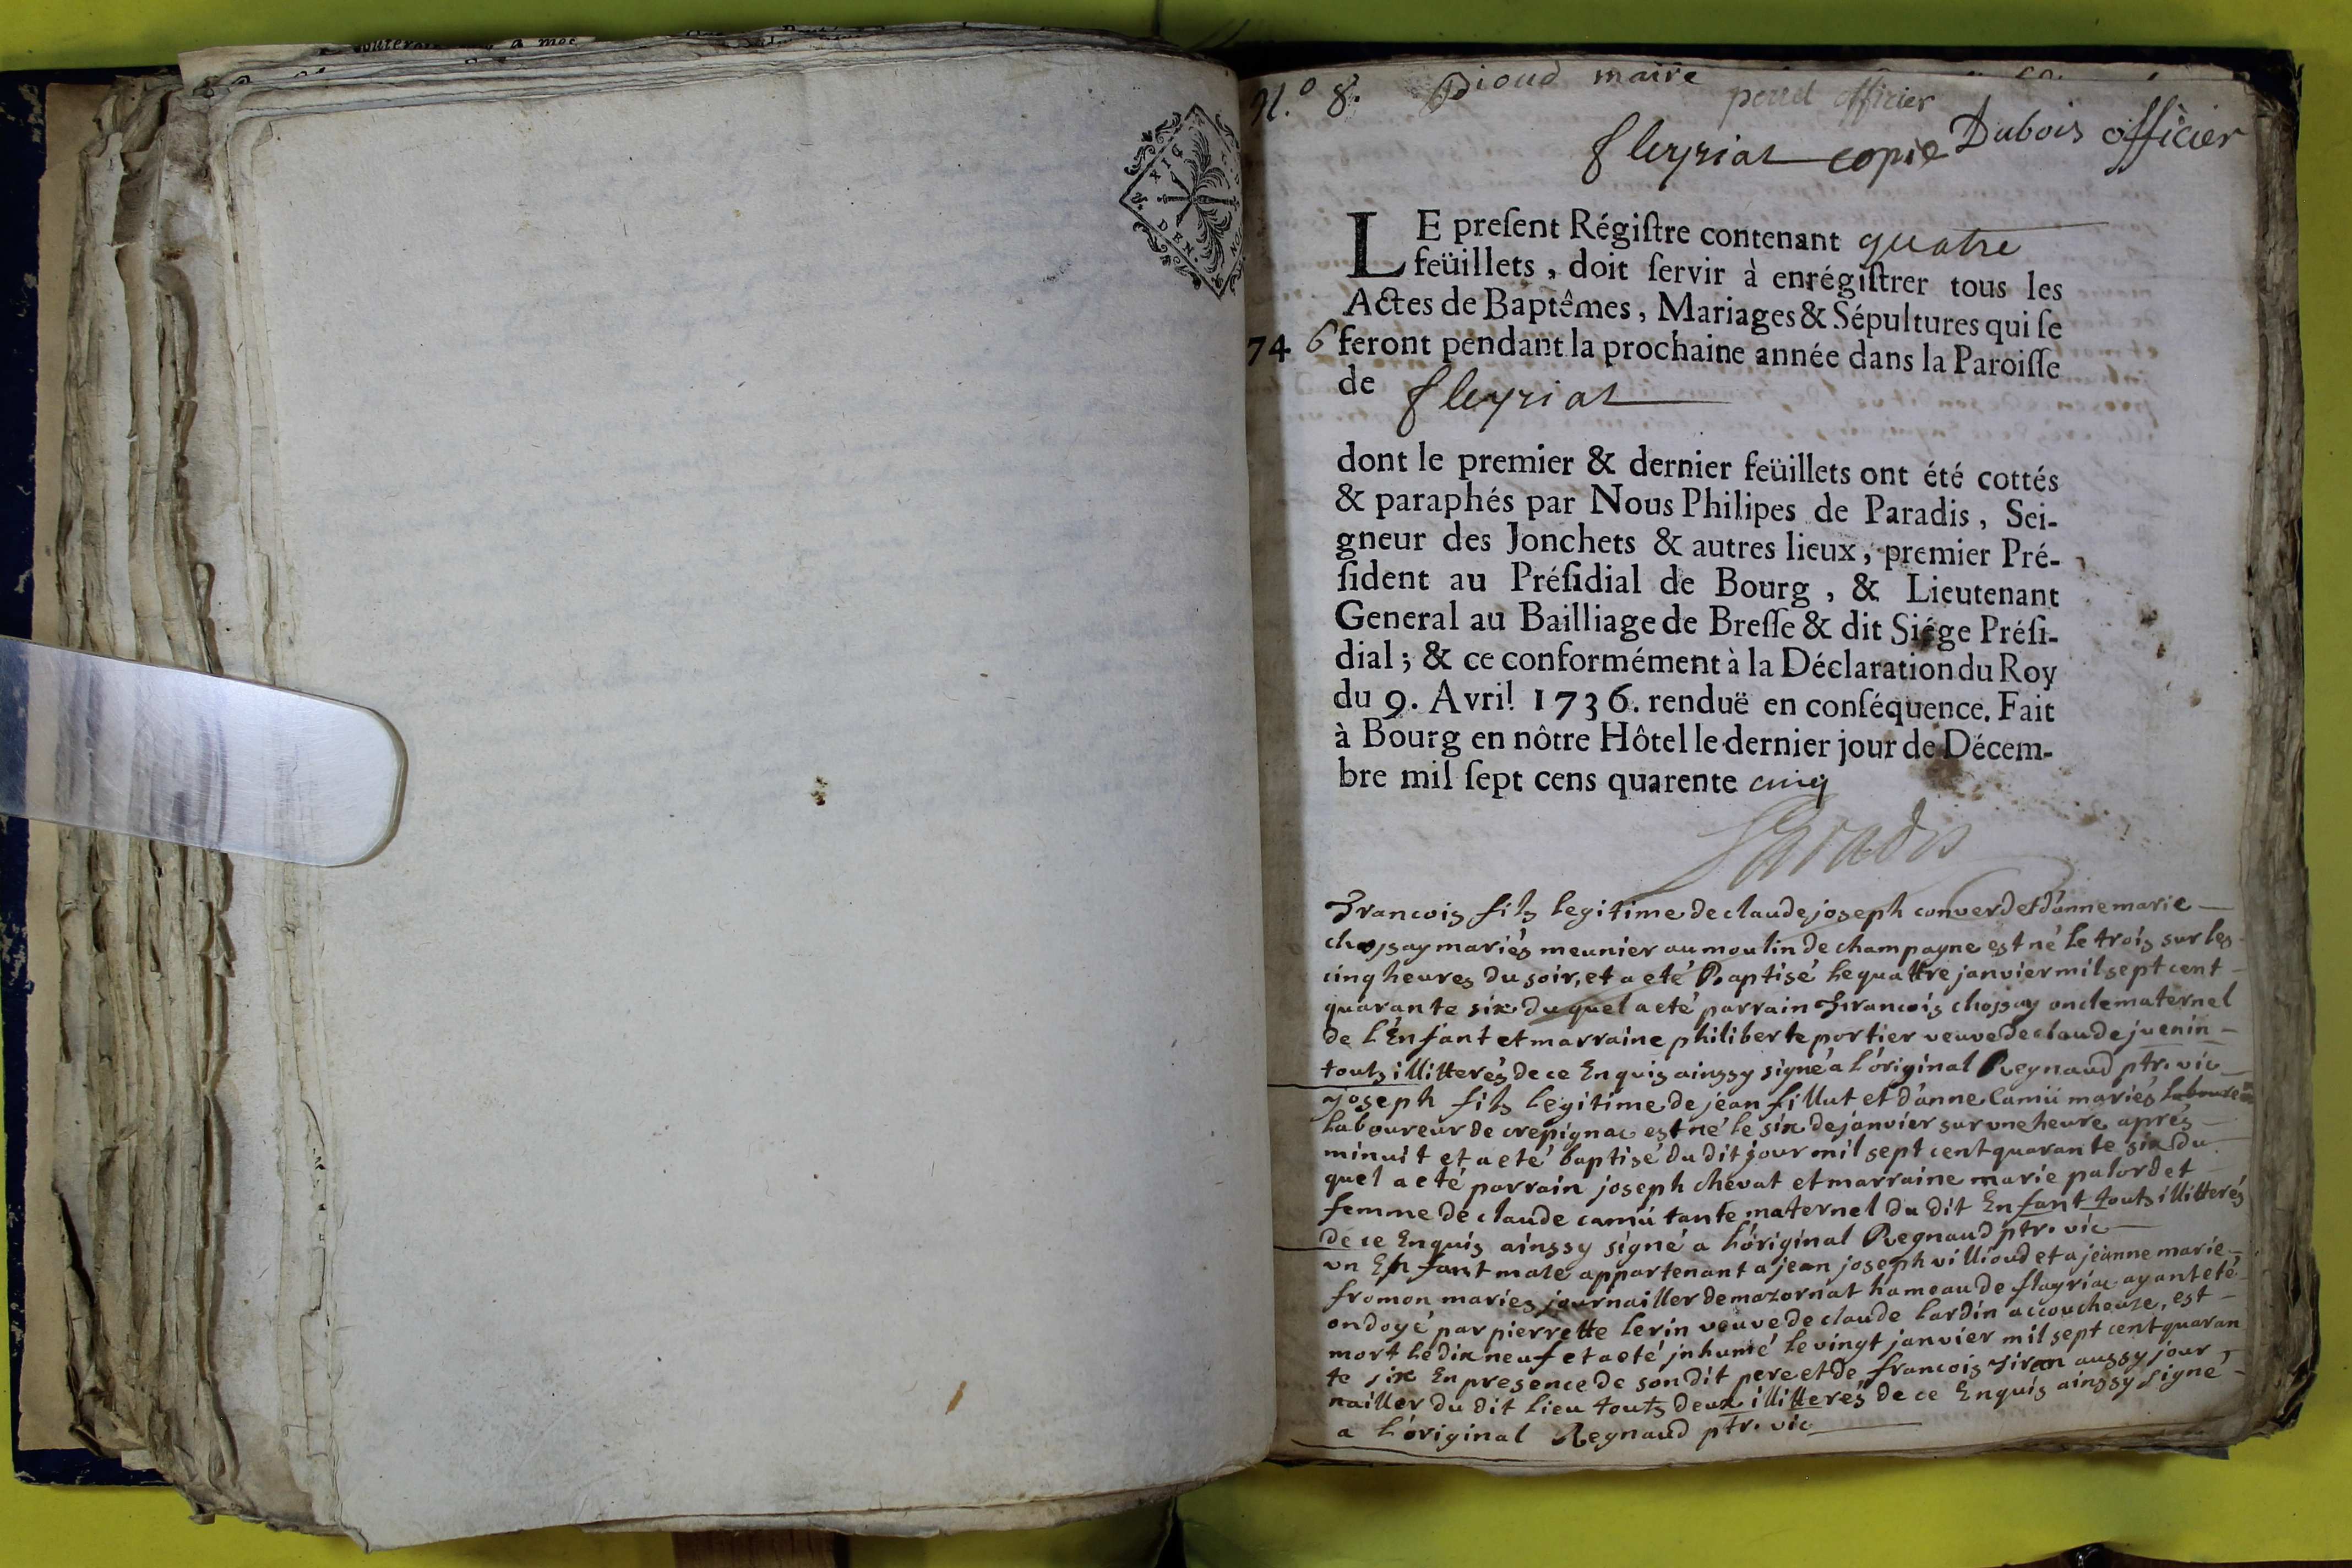 N.° 8. Dioud maire
perret officier
fleyriat copie Dubois officier
LE preſent Régiſtre contenant quatre
feüillets, doit ſervir à enrégiſtrer tous les
Actes de Baptêmes, Mariages & Sépultures qui ſe
746 feront pendant la prochaine année dans la Paroiſſe
de fleyriat
dont le premier & dernier feüillets ont été cottés
& paraphés par Nous Philipes de Paradis, Sei-
gneur des Jonchets & autres lieux, premier Pré-
ſident au Préſidial de Bourg, & Lieutenant
General au Bailliage de Breſſe & dit Siége Préſi-
dial; & ce conformément à la Déclaration du Roy
du 9. Avril 1736. renduë en conſéquence. Fait
à Bourg en nôtre Hôtel le dernier jour de Décem-
bre mil ſept cens quarente cinq
Paradis
Francois fils legitime de claude joseph converd et d'anne marie
chossay mariés meunier au moulin de champagne est né le trois sur les
cinq heures du soir, et a eté Baptisé le quattre janvier mil sept cent
quarante six du quel a eté parrain Francois chossay oncle maternel
de l'Enfant et marraine philiberte portier veuve de claude juenin
touts illitterés de ce Enquis ainssy signé a l'original Regnaud ptr. vic
joseph fils legitime de jean fillut et d'anne Camü mariés laboure
laboureur de crepignac est né le six de janvier sur une heure aprés
minuit et a eté baptisé du dit jour mil sept cent quarante six du
quel a eté parrain joseph chevat et marraine marie palordet
femme de claude camü tante maternel du dit Enfant touts illitterés
de ce Enquis ainssy signé a l'original Regnaud ptr. vic
un Enfant male appartenant a jean joseph villioud et a jeanne marie
fromon mariés journailler de mazornat hameau de flayriac ayant eté
ondoyé par pierrette lerin veuve de claude lardin accoucheuse, est
mort le dix neuf et a eté jnhumé le vingt janvier mil sept cent quaran
te six En presence de son dit pere et de francois siran aussy jour
nailler du dit lieu touts deux illitterés de ce Enquis ainssy signé
a l'original Regnaud ptr. vic